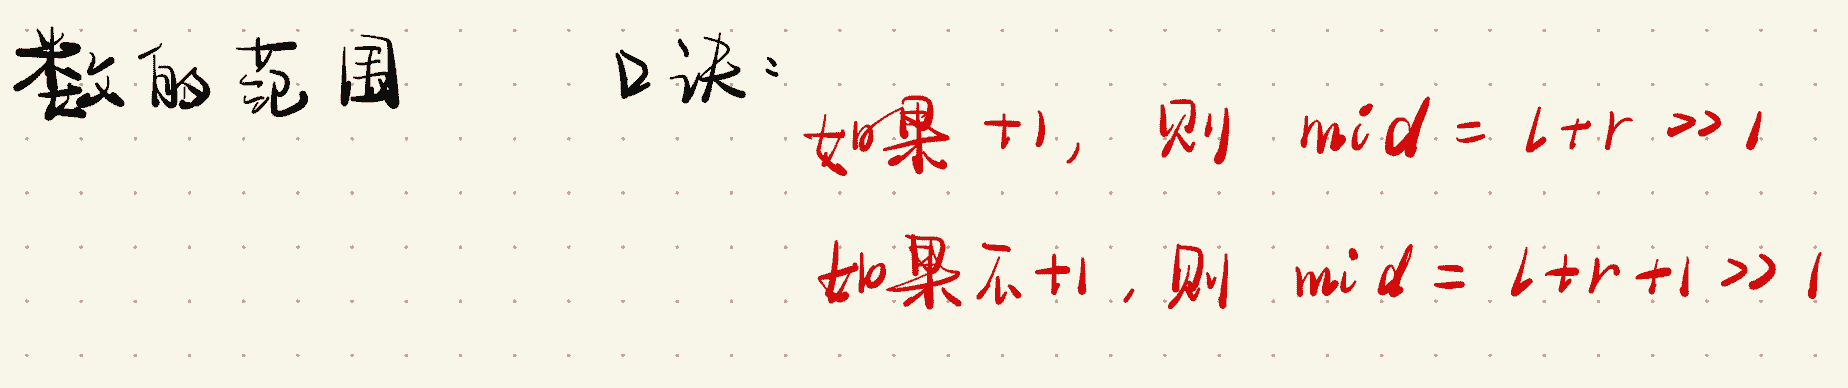 数的范围 口诀:
如果 +1, 则 mid = l+r >> 1
如果不+1, 则 mid = l+r+1 >> 1